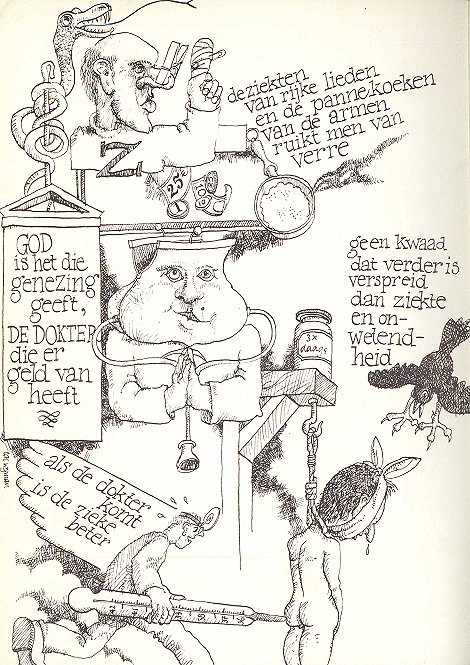 de ziekten
van rijke lieden
en de pannekoeken
van de armen
ruikt men van
verre
Z
25ct
GOD
is het die
genezing
geeft,
DE DOKTER
die er
geld van
heeft
geen kwaad
dat verder is
verspreid
dan ziekte
en on-
wetend-
heid
3x
daags
als de dokter
komt
is de zieke
beter